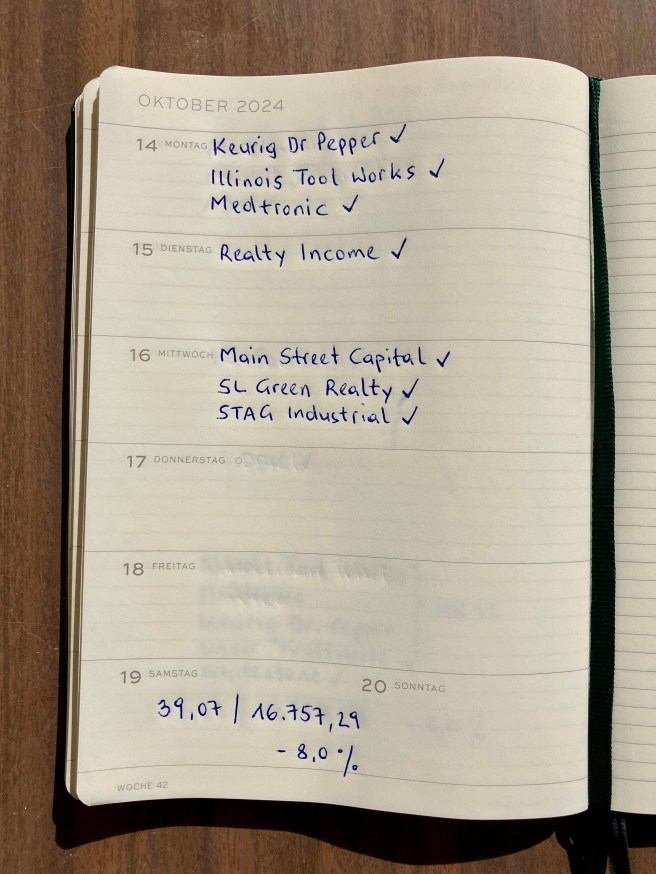 OKTOBER 2024
14 MONTAG Keurig Dr Pepper ✓
Illinois Tool Works ✓
Medtronic ✓
15 DIENSTAG Realty Income ✓
16 MITTWOCH Main Street Capital ✓
SL Green Realty ✓
STAG Industrial ✓
17 DONNERSTAG
18 FREITAG
19 SAMSTAG
20 SONNTAG
39,07 / 16.757,29
- 8,0 %
WOCHE 42